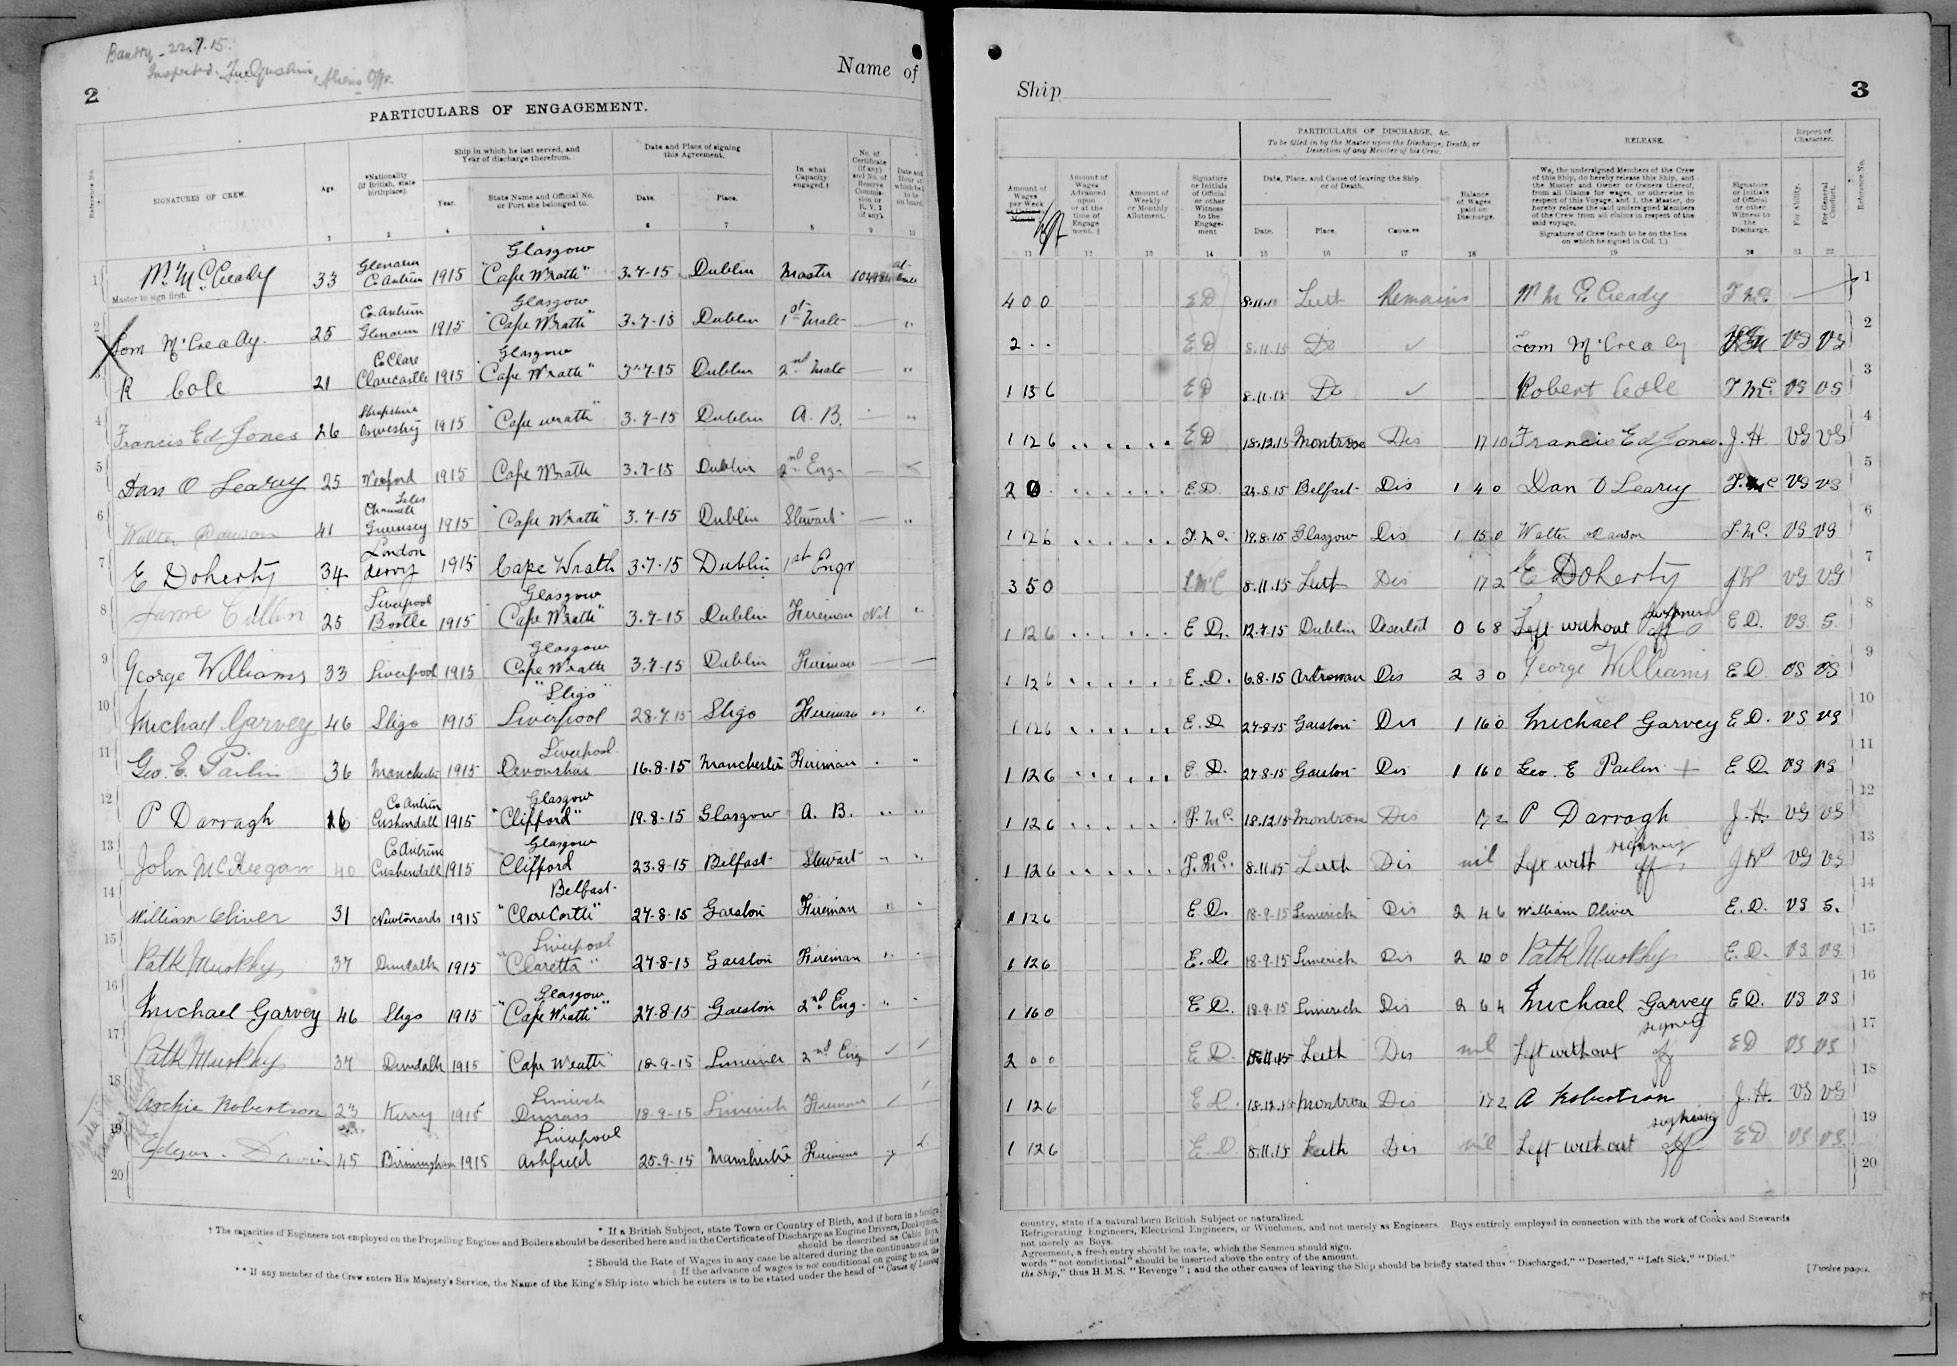 Bantry - 22.7.15.
Inspected.
2
Name of
PARTICULARS OF ENGAGEMENT.
Reference No.
SIGNATURES OF CREW.
Age.
*Nationality (If British, state birthplace).
Ship in which he last served, and Year of discharge therefrom.
Year.
State Name and Official No. or Port she belonged to.
Date and Place of signing this Agreement.
Date.
Place.
In what Capacity engaged.†
No. of Certificate (if any) and No. of Reserve Commission or R.V.2 (if any).
1 2 3 4 5 6 7 8 9 10
1 McCready 33 Glenarm Co. Antrim 1915 Glasgow "Cape Wrath" 3.7-15 Dublin Master
Master to sign first.
2 Tom McCready. 25 Co. Antrim Glenarm 1915 Glasgow "Cape Wrath" 3.7-15 Dublin 1st Mate
3 R Cole 21 Co Clare Clarecastle 1915 Glasgow "Cape Wrath" 3.7-15 Dublin 2nd Mate
4 Francis Ed Jones 26 Shropshire Oswestry 1915 "Cape wrath" 3.7-15 Dublin A. B.
5 Dan O Leary 25 Wexford 1915 Cape Wrath 3.7-15 Dublin 2nd Eng-
6 Walter Dawson 41 Channell Isles Guernsey 1915 "Cape Wrath" 3.7-15 Dublin Stewart
7 E Doherty 34 London derry 1915 Cape Wrath 3.7-15 Dublin 1st Engr
8 Cullen 25 Liverpool Bootle 1915 Glasgow "Cape Wrath" 3.7-15 Dublin Fireman Nil
9 George Williams 33 Liverpool 1915 Glasgow Cape Wrath 3.7-15 Dublin Fireman
10 Michael Garvey 46 Sligo 1915 "Sligo" Liverpool 28.7.15 Sligo Fireman
11 Geo. E. Pailin 36 Manchester 1915 Liverpool Devonshire 16.8-15 Manchester Fireman
12 P Darragh 26 Co Antrim Cushendall 1915 Glasgow "Clifford" 19.8-15 Glasgow A. B.
13 John McKeegan 40 Co Antrim Cushendall 1915 Glasgow Clifford 23.8-15 Belfast Stewart
14 William Oliver 31 Newtonards 1915 Belfast "Clare Castle" 27-8-15 Garston Fireman
15 Patk Murphy 37 Dundalk 1915 Liverpool "Claretta" 27-8-15 Garston Fireman
16 Michael Garvey 46 Sligo 1915 Glasgow "Cape Wrath" 27-8-15 Garston 2nd Eng.
17 Patk Murphy 37 Dundalk 1915 "Cape Wrath" 18-9-15 Limerick 2nd Eng
18 Archie Robertson 23 Kerry 1915 Limerick 18-9-15 Limerick Fireman
19 45 Birmingham 1915 Liverpool Ashfield 25-9-15 Manchester Fireman
20
* If a British Subject, state Town or Country of Birth, and if born in a foreign
† The capacities of Engineers not employed on the Propelling Engines and Boilers should be described here and in the Certificate of Discharge as Engine Drivers, Donkeymen,
should be described as Cabin Boys,
‡ Should the Rate of Wages in any case be altered during the continuance of this
§ If the advance of wages is not conditional on going to sea, the
** If any member of the Crew enters His Majesty's Service, the Name of the King's Ship into which he enters is to be stated under the head of "Cause of Leaving
Ship
3
Amount of Wages per Week
Amount of Wages Advanced upon or at the time of Engagement. ‡
Amount of Weekly or Monthly Allotment.
Signature or Initials of Official or other Witness to the Engagement
PARTICULARS OF DISCHARGE, &c.
To be filled in by the Master upon the Discharge, Death, or Desertion of any Member of his Crew.
Date, Place, and Cause of leaving the Ship or of Death.
Date. Place. Cause.**
Balance of Wages paid on Discharge.
RELEASE.
We, the undersigned Members of the Crew of this Ship, do hereby release this Ship, and the Master and Owner or Owners thereof, from all Claims for wages, or otherwise in respect of this Voyage, and I, the Master, do hereby release the said undersigned Members of the Crew from all claims in respect of the said voyage.
Signature of Crew (each to be on the line on which he signed in Col. 1.)
Signature or Initials of Official or other Witness to the Discharge.
Report of Character.
For Ability.
For General Conduct.
Reference No.
11 12 13 14 15 16 17 18 19 20 21 22
4 0 0 E D 8.11.15 Leith Remains McCready T McC. 1
2 . . E D 8.11.15 Do Tom McCready VG VG 2
1 15 6 E D 8.11.15 Do Robert Cole T McC. VG VG 3
1 12 6 E D 18.12.15 Montrose Dis 17 10 Francis Ed Jones. J. H. VG VG 4
2 0 E. D. 24.8.15 Belfast Dis 1 4 0 Dan O Leary VG VG 5
1 12 6 T. McC. 19.8.15 Glasgow Dis 1 15 0 Walter Dawson T. McC. VG VG 6
3 5 0 8.11.15 Leith Dis 17 2 E Doherty VG VG 7
1 12 6 E D. 12.7.15 Dublin Deserted 0 6 8 Left without signing off E D. VG. G. 8
1 12 6 E. D. 6.8.15 Ardrossan Dis 2 3 0 George Williams E D. VG VG 9
1 12 6 E. D 27-8-15 Garston Dis 1 16 0 Michael Garvey E D. VG VG 10
1 12 6 E. D. 27-8-15 Garston Dis 1 16 0 Geo. E Pailin + E D. VG VG 11
1 12 6 T. McC. 18.12.15 Montrose Dis 17 2 P Darragh J. H. VG VG 12
1 12 6 T. McC. 8.11.15 Leith Dis nil Left with signing off VG VG 13
1 12 6 E. D. 18-9-15 Limerick Dis 2 4 6 William Oliver E. D. VG G. 14
1 12 6 E. D. 18-9-15 Limerick Dis 2 10 0 Patk Murphy E. D. VG VG 15
1 16 0 E D. 18.9-15 Limerick Dis 2 6 4 Michael Garvey E D. VG VG 16
2 0 0 E D. 8.11.15 Leith Dis nil Left without signing off E D VG VG 17
1 12 6 E D. 18.12.15 Montrose Dis 17 2 A Robertson J. H. VG VG 18
1 12 6 E D 8.11.15 Leith Dis nil Left without signing off E D VG VG. 19
20
country, state if a natural born British Subject or naturalized.
Refrigerating Engineers, Electrical Engineers, or Winchmen, and not merely as Engineers. Boys entirely employed in connection with the work of Cooks and Stewards
not merely as Boys.
Agreement, a fresh entry should be made, which the Seamen should sign.
words "not conditional" should be inserted above the entry of the amount.
the Ship," thus H.M.S. "Revenge"; and the other causes of leaving the Ship should be briefly stated thus "Discharged," "Deserted," "Left Sick," "Died."
[Twelve pages.